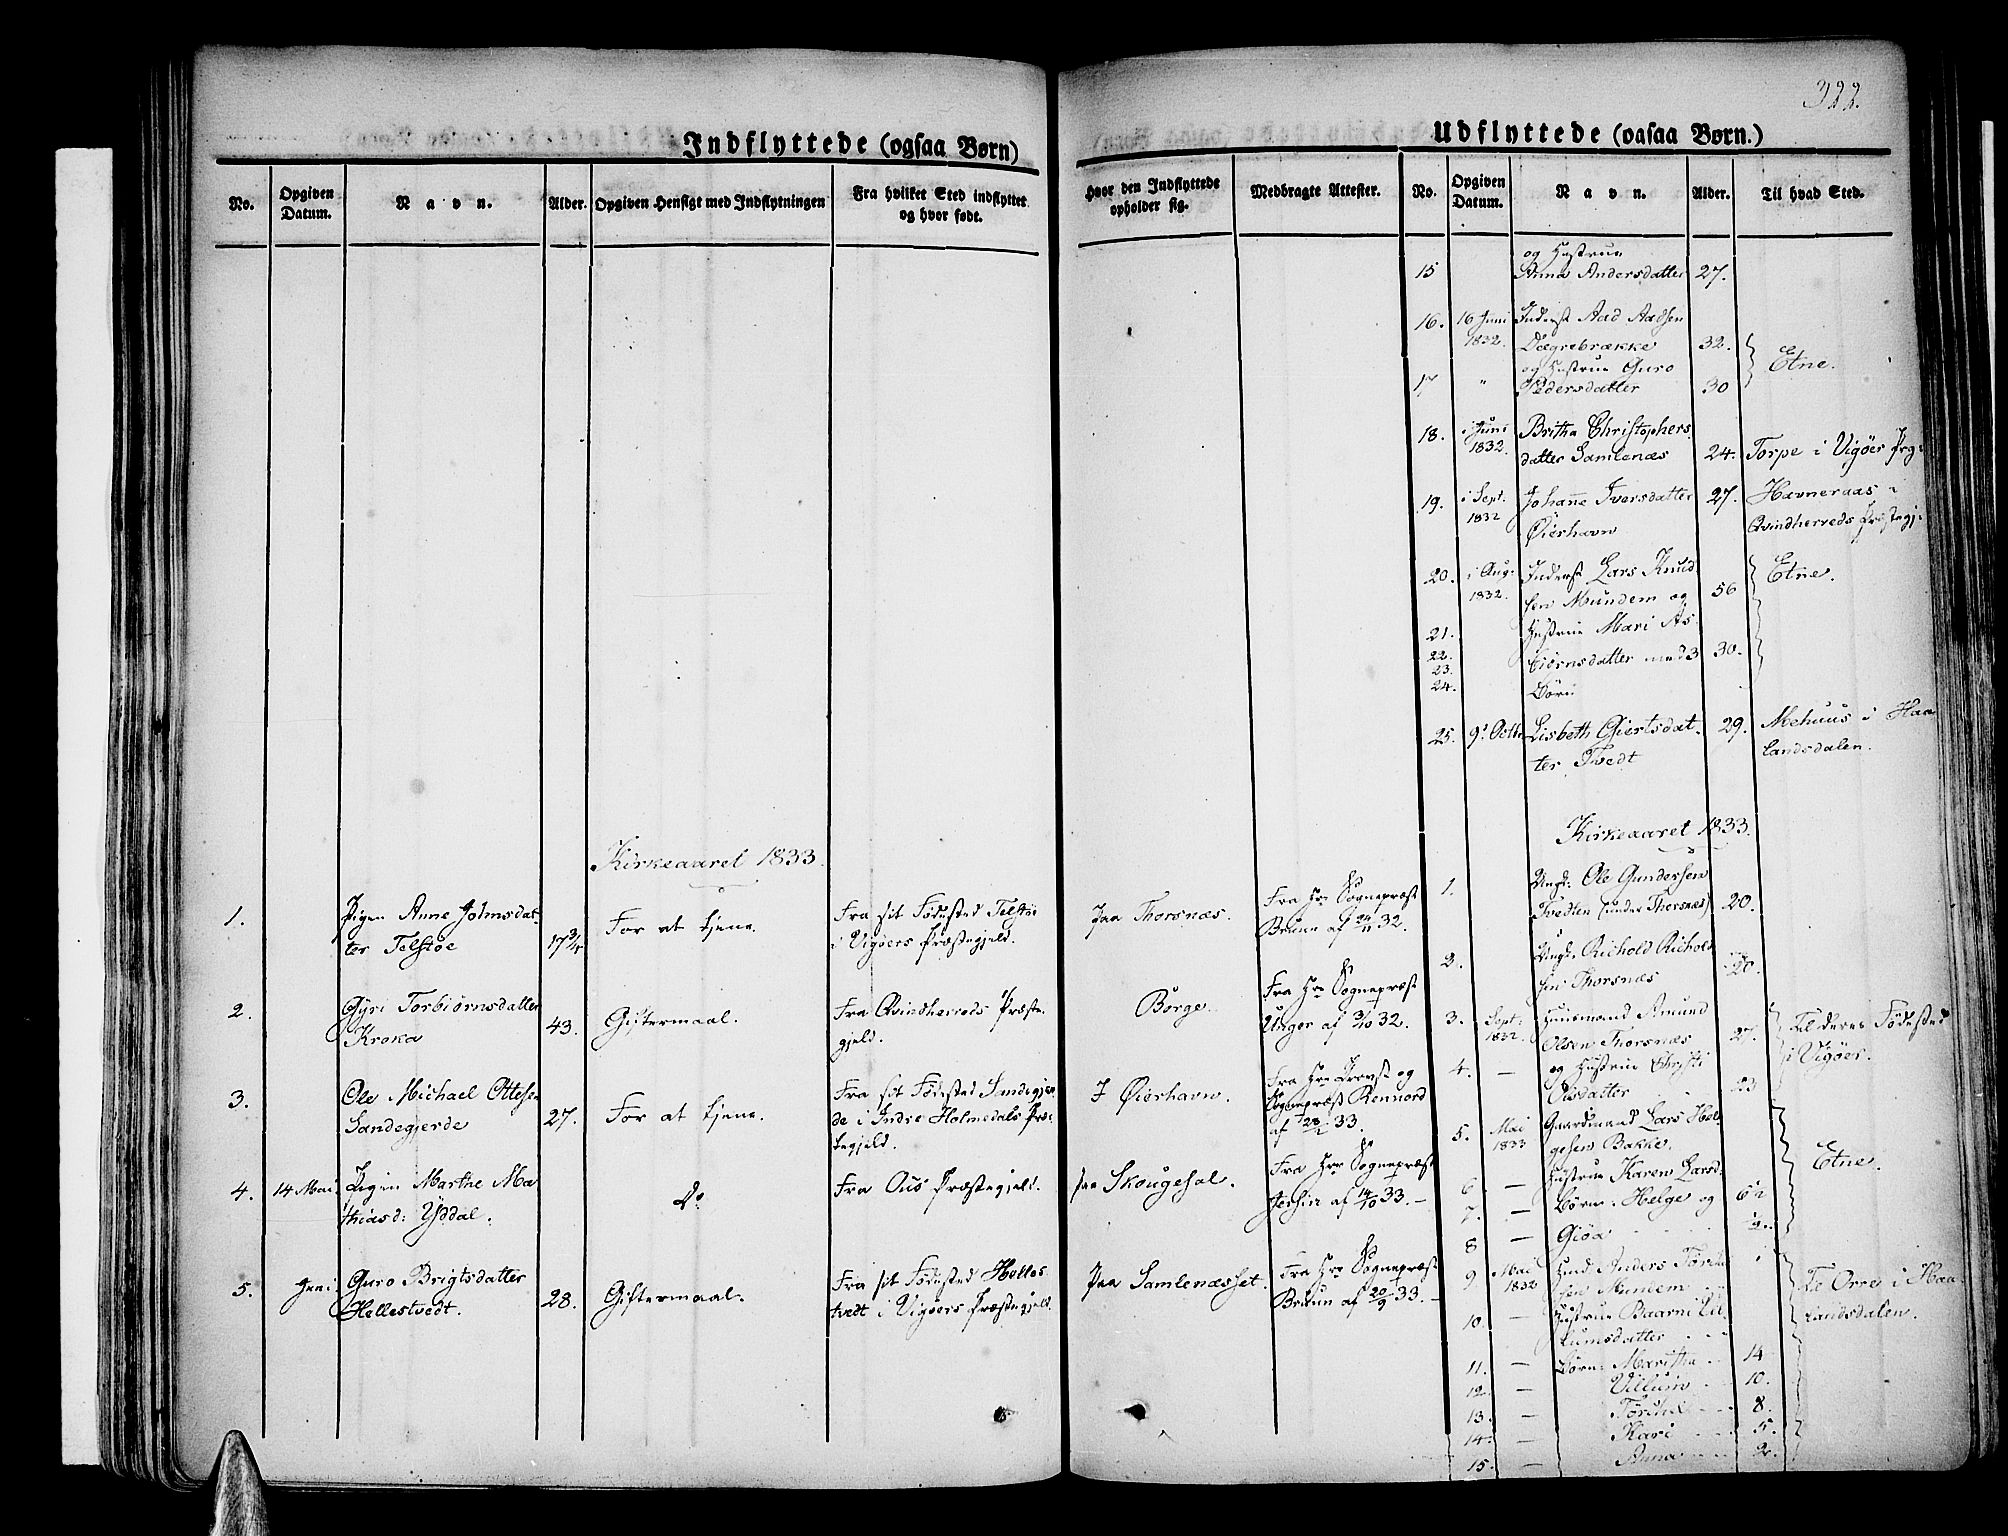 322.
Indflyttede (ogsaa Børn)
No.
Opgiven Datum.
Navn.
Alder.
Opgiven Hensigt med Indflytningen
Fra hvilket Sted indflyttet og hvor født.
Hvor den Indflyttede opholder sig.
Medbragte Attester.
Kirkeaaret 1833.
1.
Pigen Anne Johnsdat-
ter Telstøe
17 3/4
For at tjene.
Fra sit Fødested Telstøe
i Vigøers Præstegjeld.
Paa Thorsnæs.
Fra Hr. Sognepræst
Bruun af 24/11 32.
2.
Gyri Torbiørnsdatter
Kroka
43.
Giftermaal.
Fra Qvindherreds Præste-
gjeld.
Borge.
Fra Hr. Sognepræst
Unger af 3/10 32.
3.
Ole Michael Ottesen
Sandegjerde
27.
For at tjene.
Fra sit Fødested Sandegjer-
de i Indre Holmedals Præ-
stegjeld.
I Øierhavn.
Fra Hr. Provst og
Sognepræst Rennord
af 28/1 33.
4.
14 Mai
Pigen Marthe Ma-
thiasd: Yddal.
Do
Fra Ous Præstegjeld.
Paa Skougesal.
Fra Hr. Sognepræst
af 14/10 33.
5.
Juni
Guro Brigtsdatter
Hellestvedt.
28.
Giftermaal.
Fra sit Fødested Helles-
tvedt i Vigøers Præstegjeld.
Paa Samlenæsset.
Fra Hr. Sognepræst
Bruun af 20/9 33.
Udflyttede (ogsaa Børn.)
No.
Opgiven Datum.
Navn.
Alder.
Til hvad Sted.
og Hustrue
15
Anna Andersdatter
27.
16.
16 Juni
1832.
Inderst Aad Aadsen
Dægrebrække
32.
Etne.
og Hustrue Guro
17
"
Pedersdatter
30
18.
i Juni
1832.
Britha Christophers-
datter Samlenæs
24.
Torpe i Vigøer Prg:
19.
i Sept.
1832
Johanne Iversdatter
Øierhavn
27.
Havneraas i
Qvindherreds Præstegj:
20.
i Aug:
1832.
Inderst Lars Knud-
sen Mundem og
56
Etne.
21.
Hustrue Mari As-
22.
23.
biørnsdatter med 3
30.
24.
Børn
25.
9. Octb.
Lisbeth Giertsdat-
ter Tvedt
29.
Mehuus i Haa-
landsdalen.
Kirkeaaret 1833.
1.
Ungk: Ole Gundersen
Tvedten (under Thorsnæs)
20.
2.
Ungk: Richold Richold-
sen Thorsnæs
20.
3.
Sept:
1832.
Huusmand Amund
Olsen Thorsnæs
27.
Til deres Fødested
i Vigøer.
4.
—
og Hustrue Christi
Olsdatter
23
5.
Mai
1833
Gaardmand Lars Hel-
gesen Bakke.
Etne.
6
—
Hustrue Karen Larsd:
7.
—
Børn: Helge og
6 1/2
8
—
Gioa
9
Mai
1832
Anders
sen Mundem
Til Orre i Haa-
landsdalen.
10.
—
Hustrue Baarni Vil-
lumsdatter
11.
—
Børn: Maritha
14
12.
—
Villum
10.
13.
—
8.
14.
—
Kari
5.
15.
—
Anna
2.